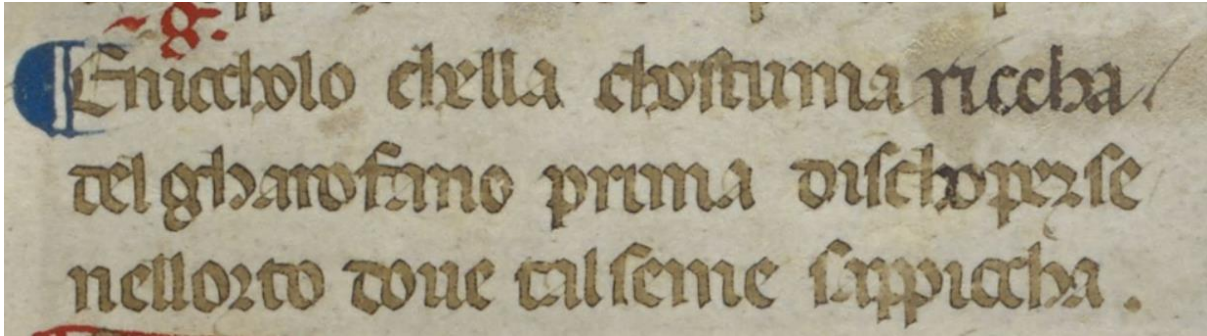 Eniccholo chella chostuma riccha /
del gharofano prima dischoperse
nellorto doue tal seme sappiccha .